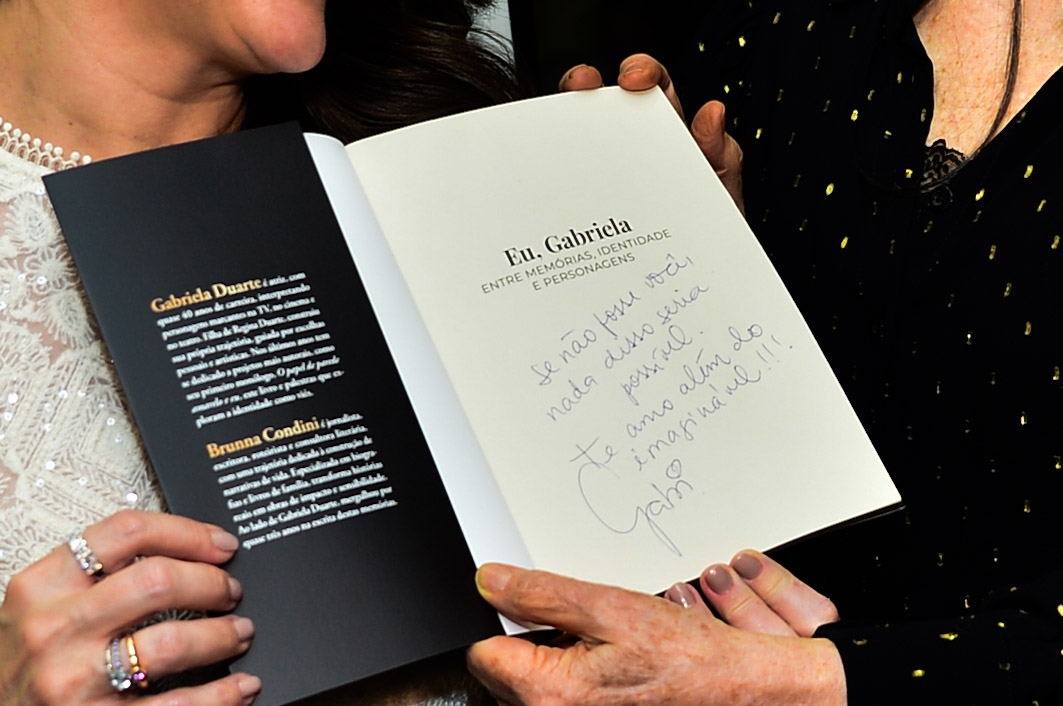 Gabriela Duarte é atriz, com
quase 40 anos de carreira, interpretando
personagens marcantes na TV, no cinema e
no teatro. Filha de Regina Duarte, construiu
sua própria trajetória, guiada por escolhas
pessoais e artísticas. Nos últimos anos tem
se dedicado a projetos mais autorais, como
seu primeiro monólogo, O papel de parede
amarelo e eu, este livro e palestras que ex-
ploram a identidade como viés.
Brunna Condini é jornalista,
escritora, roteirista e consultora literária,
com uma trajetória dedicada à construção de
narrativas de vida. Especializada em biogra-
fias e livros de família, transforma histórias
reais em obras de impacto e sensibilidade.
Ao lado de Gabriela Duarte, mergulhou por
quase três anos na escrita destas memórias.
Eu, Gabriela
ENTRE MEMÓRIAS, IDENTIDADE
E PERSONAGENS
se não fosse você,
nada disso seria
possível.
te amo além do
imaginável!!!
Gabi